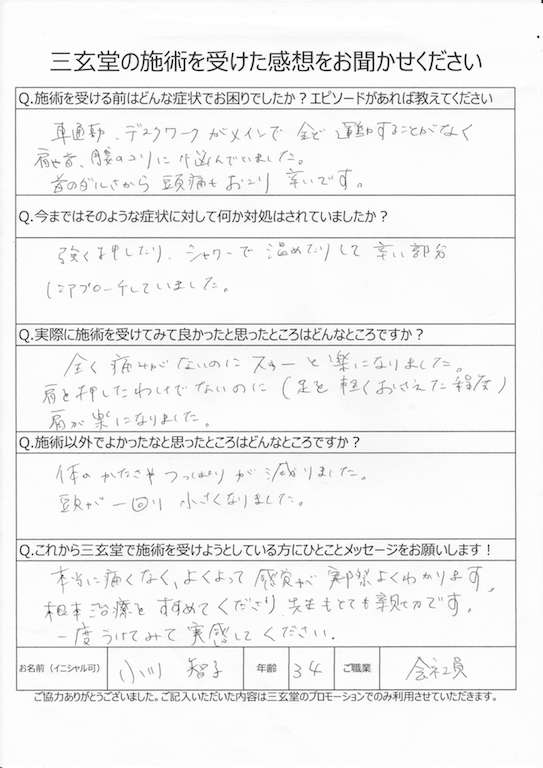 三玄堂の施術を受けた感想をお聞かせください
Q.施術を受ける前はどんな症状でお困りでしたか？エピソードがあれば教えてください
車通勤、デスクワークがメインで 全く 運動することがなく
肩や首、腰のコリに 悩んでいました。
首のダルさから 頭痛も おこり 辛いです。
Q.今まではそのような症状に対して何か対処はされていましたか？
強く押したり、シャワーで 温めたりして 辛い部分
にアプローチしていました。
Q.実際に施術を受けてみて良かったと思ったところはどんなところですか？
全く 痛みがないのに スゥーと 楽になりました。
肩を押したわけでないのに (足を 軽くおさえた程度)
肩が楽になりました。
Q.施術以外でよかったなと思ったところはどんなところですか？
体の かたさや つっぱりが 減りました。
頭が 一回り 小さくなりました。
Q.これから三玄堂で施術を受けようとしている方にひとことメッセージをお願いします！
本当に痛くなく、よくなって 感覚が 実際よくわかります。
根本治療を すすめてくださり 先生もとても 親切です。
一度うけてみて 実感してください.
お名前（イニシャル可） 小川 智子 年齢 34 ご職業 会社員
ご協力ありがとうございました。ご記入いただいた内容は三玄堂のプロモーションでのみ利用させていただきます。